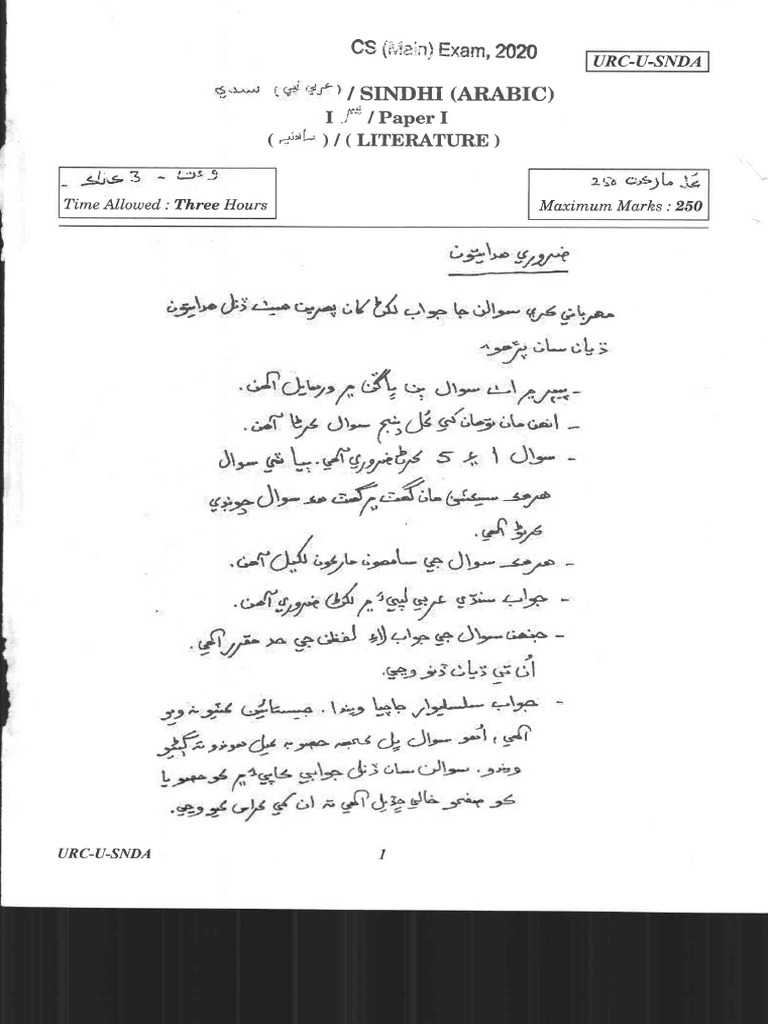 CS (Main) Exam, 2020
URC-U-SNDA
سنڌي (عربي لپي) / SINDHI (ARABIC)
I پيپر / Paper I
( ساهتيه ) / ( LITERATURE )
وقت - 3 ڪلاڪ -
Time Allowed : Three Hours
ڪل مارڪون 250
Maximum Marks : 250
ضروري هدايتون
مهرباني ڪري سوالن جا جواب لکڻ کان پهرين هيٺ ڏنل هدايتون
ڌيان سان پڙهو۔
- پيپر ۾ اٺ سوال ٻن ڀاڱن ۾ ورهايل آهن.
- انهن مان توهان کي ڪل پنج سوال ڪرڻا آهن.
- سوال 1 ۽ 5 ڪرڻا ضروري آهي. ٻيا ٽي سوال
هر هڪ سيڪشن مان گهٽ ۾ گهٽ هڪ سوال چونڊي
ڪرڻو آهي.
- هر هڪ سوال جي سامهون مارڪون لکيل آهن.
- جواب سنڌي عربي لپيءَ ۾ لکڻا ضروري آهن.
- جنهن سوال جي جواب لاءِ لفظن جي حد مقرر آهي.
اُن تي ڌيان ڏنو وڃي.
- جواب سلسليوار جاچيا ويندا. جيستائين ڪٽيو نہ ويو
آهي، اهو سوال ڀل ڪجهہ حصو ئي ڪيل هوندو تہ ڳڻيو
ويندو. سوالن سان ڏنل جوابي ڪاپيءَ ۾ ڪو حصو يا
ڪو صفحو خالي ڇڏيل آهي تہ ان کي ڪراس ڪيو وڃي.
URC-U-SNDA
1